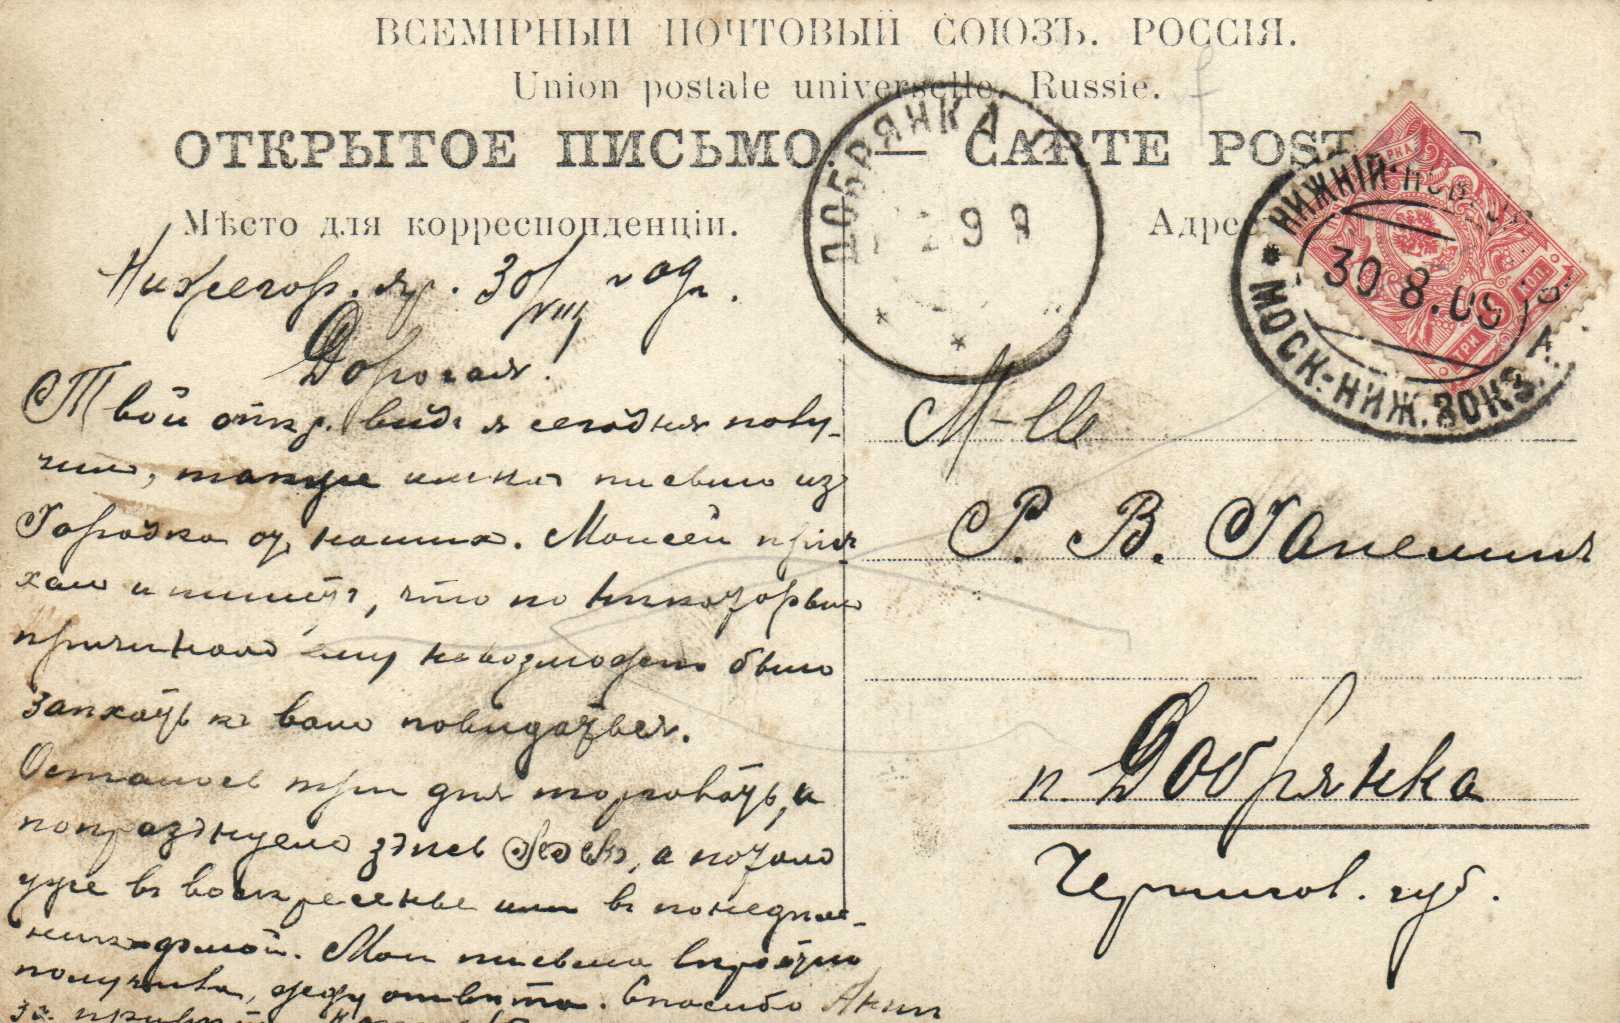 ВСЕМІРНЫЙ ПОЧТОВЫЙ СОЮЗЪ. РОССІЯ.
Union postale universelle. Russie.
ОТКРЫТОЕ ПИСЬМО. — CARTE POST
Мѣсто для корреспонденціи.
Адрес
ДОБРЯНКА
9 9
НИЖНІЙ-НОВ
30 8.09
МОСК.-НИЖ. ВОКЗ.
КОП
ТРИ
Нижегор. яр. 30/VIII 09 г.
Дорогая!
Твой откр. видъ я сегодня полу-
чилъ, также имѣлъ письмо из
Городка от наших. Моисей приѣ-
хал и пишет, что по некоторым
причинам ему невозможно было
заехать къ вам повидаться.
Осталось три дня торговать, и
попразднуемъ здѣсь а потом
уже въ воскресенье или въ понедѣль-
никъ домой. Мои письма вѣроятно
получила, жду отвѣта. Спасибо
за привѣт
M-lle
Р. В. Гапелиня
п. Добрянка
Чернигов. губ.